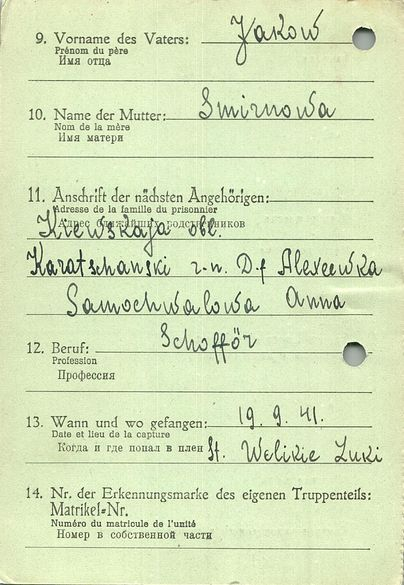 9. Vorname des Vaters: Jakow
Prénom du père
Имя отца
10. Name der Mutter: Smirnowa
Nom de la mère
Имя матери
11. Anschrift der nächsten Angehörigen:
Adresse de la famille du prisonnier
Адрес ближайших родственников
Kiewskaja obl.
Karatschanski r-n. D-f Alexeewka
Samochwalowa Anna
12. Beruf: Schofför
Profession
Профессия
13. Wann und wo gefangen: 19. 9. 41.
Date et lieu de la capture
Когда и где попал в плен St. Welikie Luki
14. Nr. der Erkennungsmarke des eigenen Truppenteils:
Matrikel-Nr.
Numéro du matricule de l'unité
Номер в собственной части